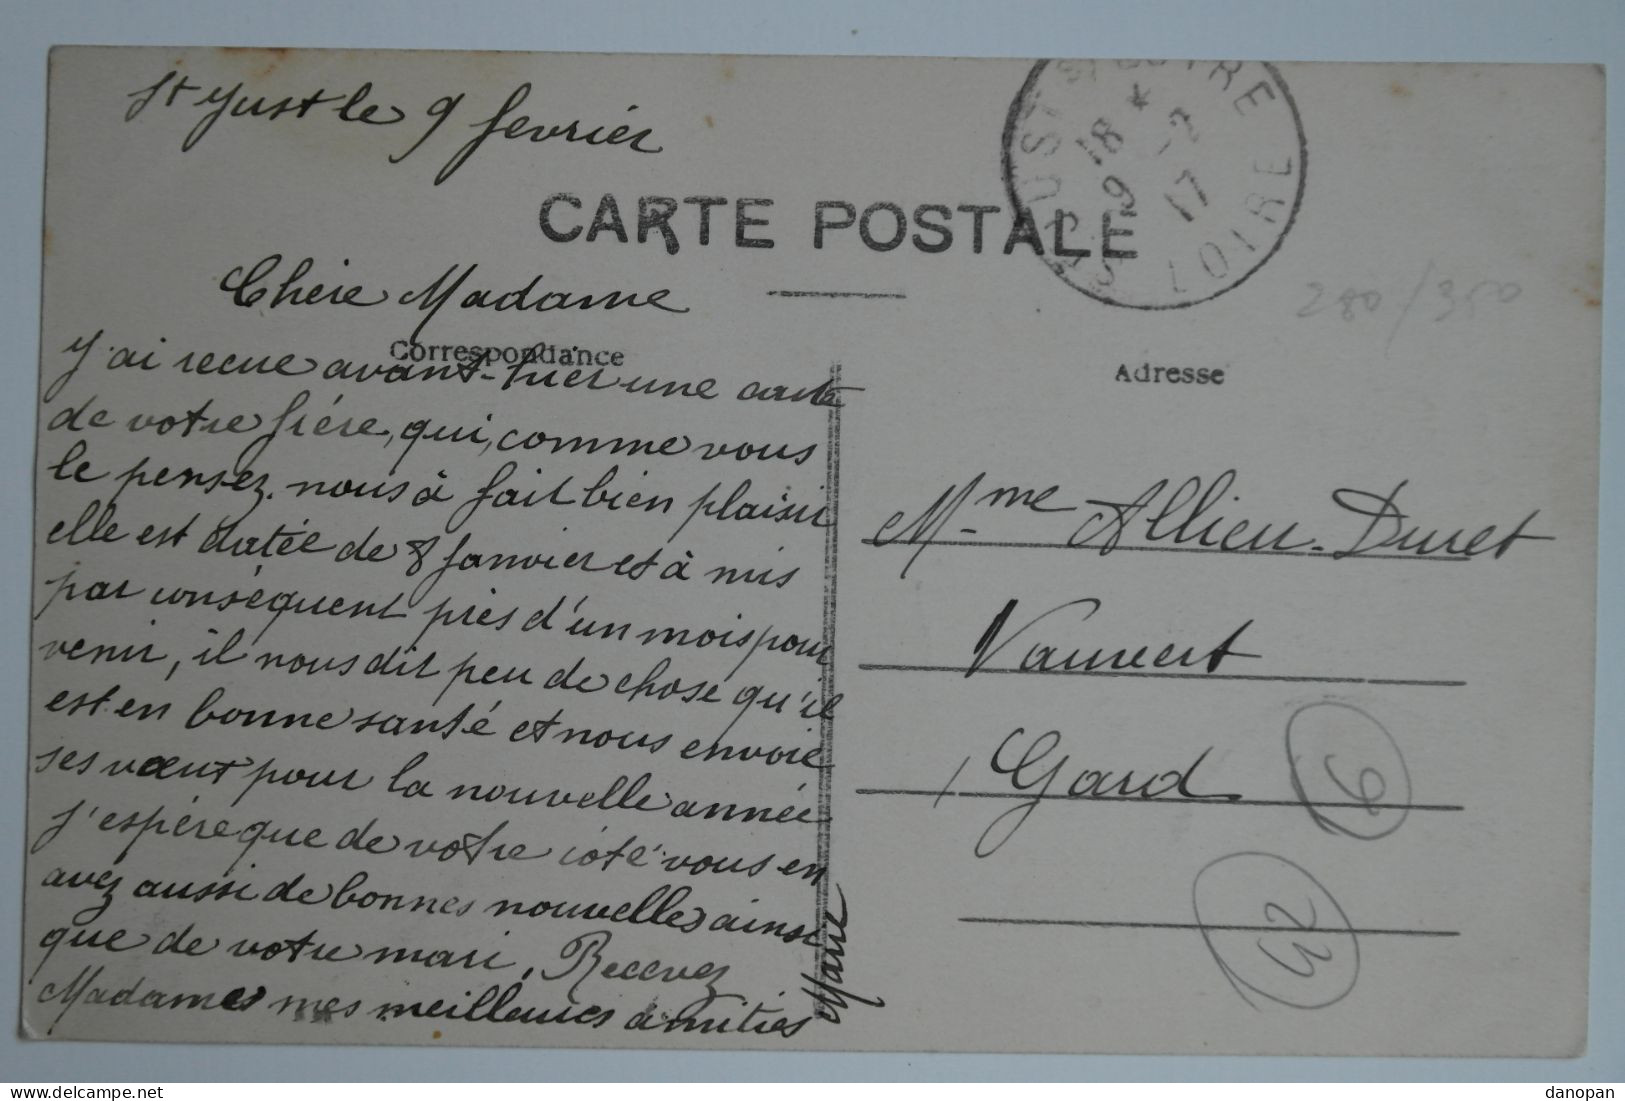 St Just le 9 fevrier
ST JUST S/ LOIRE
18 *
9 -2
17
LOIRE
CARTE POSTALE
Chére Madame
280/350
Correspondance
Adresse
J'ai recue avant-hier une carte
de votre frére, qui, comme vous
le pensez, nous à fait bien plaisir
elle est datée de 8 Janvier et à mis
par conséquent près d'un mois pour
venir, il nous dit peu de chose qu'il
est en bonne santé et nous envoie
ses vœux pour la nouvelle année
J'espére que de votre coté vous en
avez aussi de bonnes nouvelles ainsi
que de votre mari. Recevez
Madames mes meilleures amitiés
Marie
Mme Allieu-Duret
Vauvert
Gard
6
42
delcampe.net
danopan